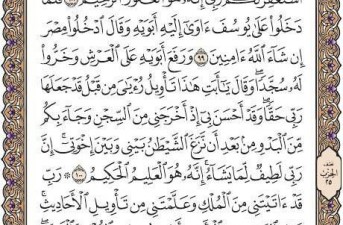 أَسۡتَغۡفِرُ لَكُمۡ رَبِّيٓۖ إِنَّهُۥ هُوَ ٱلۡغَفُورُ ٱلرَّحِيمُ ٩٨ فَلَمَّا
دَخَلُواْ عَلَىٰ يُوسُفَ ءَاوَىٰٓ إِلَيۡهِ أَبَوَيۡهِ وَقَالَ ٱدۡخُلُواْ مِصۡرَ
إِن شَآءَ ٱللَّهُ ءَامِنِينَ ٩٩ وَرَفَعَ أَبَوَيۡهِ عَلَى ٱلۡعَرۡشِ وَخَرُّواْ
لَهُۥ سُجَّدٗاۖ وَقَالَ يَٰٓأَبَتِ هَٰذَا تَأۡوِيلُ رُءۡيَٰيَ مِن قَبۡلُ قَدۡ جَعَلَهَا
رَبِّي حَقّٗاۖ وَقَدۡ أَحۡسَنَ بِيٓ إِذۡ أَخۡرَجَنِي مِنَ ٱلسِّجۡنِ وَجَآءَ بِكُم
مِّنَ ٱلۡبَدۡوِ مِنۢ بَعۡدِ أَن نَّزَغَ ٱلشَّيۡطَٰنُ بَيۡنِي وَبَيۡنَ إِخۡوَتِيٓۚ إِنَّ
رَبِّي لَطِيفٞ لِّمَا يَشَآءُۚ إِنَّهُۥ هُوَ ٱلۡعَلِيمُ ٱلۡحَكِيمُ ١٠٠ ۞ رَبِّ
قَدۡ ءَاتَيۡتَنِي مِنَ ٱلۡمُلۡكِ وَعَلَّمۡتَنِي مِن تَأۡوِيلِ ٱلۡأَحَادِيثِۚ
نصف
الحزب
٢٥